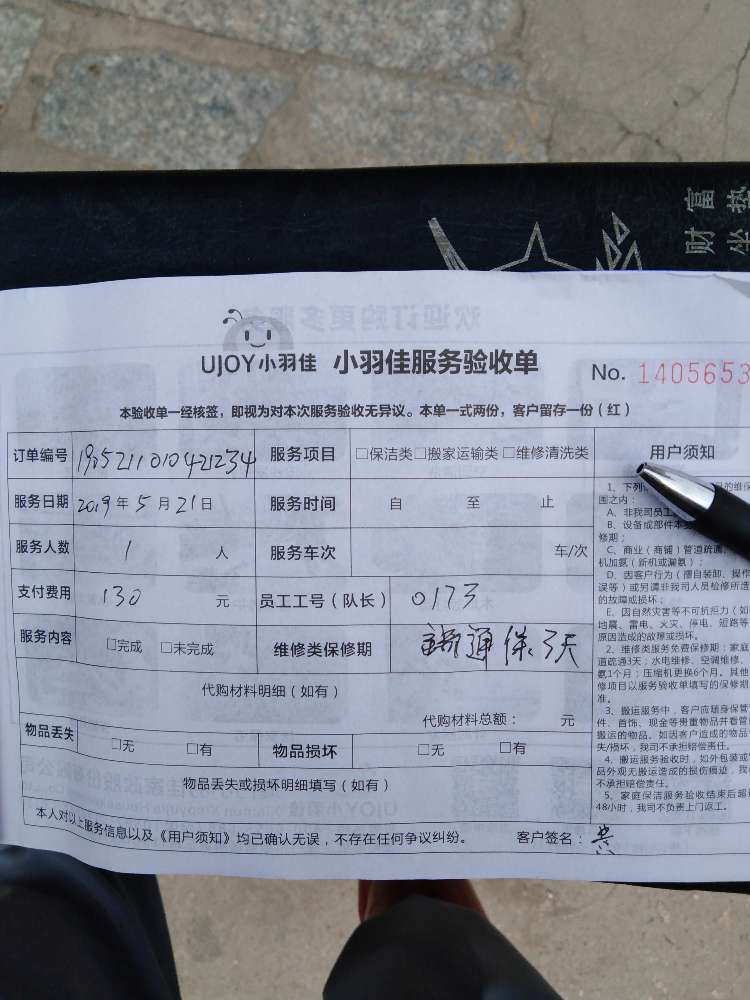 财富
坐垫
UJOY小羽佳 小羽佳服务验收单
No. 1405653
本验收单一经核签，即视为对本次服务验收无异议。本单一式两份，客户留存一份（红）
订单编号 1905211010421234 服务项目 □保洁类□搬家运输类□维修清洗类
服务日期 2019年5月21日 服务时间 自 至 止
服务人数 1 人 服务车次 车/次
支付费用 130 元 员工工号（队长） 0173
服务内容 □完成 □未完成 维修类保修期 通保3天
代购材料明细（如有）
代购材料总额： 元
物品丢失 □无 □有 物品损坏 □无 □有
物品丢失或损坏明细填写（如有）
本人对以上服务信息以及《用户须知》均已确认无误，不存在任何争议纠纷。 客户签名：
用户须知
1、下列 的维保
围之内：
A、非我司员工
B、设备或部件本
修期；
C、商业（商铺）管道疏通、
机加氨（新机或漏氨）；
D、因客户行为（擅自装卸、操作
误等）或另请非我司人员检修所造
的故障或损坏；
E、因自然灾害等不可抗拒力（如
地震、雷电、火灾、停电、短路等
原因造成的故障或损坏。
2、维修类服务免费保修期：家庭
道疏通3天；水电维修、空调维修、
氨1个月；压缩机更换6个月。其他
修项目以服务验收单填写的保修期
准。
3、搬运服务中，客户应随身保管
件、首饰、现金等贵重物品并看管
搬运的物品。如因客户造成的物品
失/损坏，我司不承担赔偿责任。
4、搬运服务验收时，如外包装或
品外观无搬运造成的损伤痕迹，我
不承担赔偿责任。
5、家庭保洁服务验收结束后超过
48小时，我司不负责上门返工。